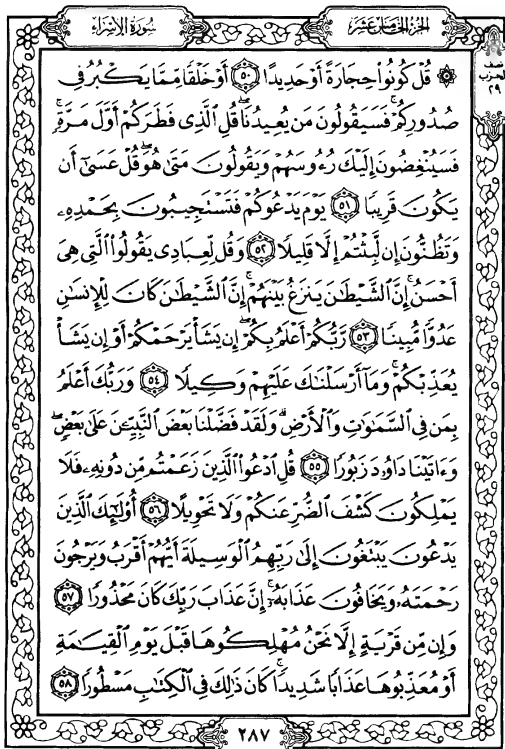 سُورَةُ الإِسْرَاء
الجُزْءُ الخَامِسَ عَشَرَ
نصف
الحزب
٢٩
۞ قُلْ كُونُوا۟ حِجَارَةً أَوْ حَدِيدًا ٥٠ أَوْ خَلْقًا مِّمَّا يَكْبُرُ فِى
صُدُورِكُمْ ۚ فَسَيَقُولُونَ مَن يُعِيدُنَا ۖ قُلِ ٱلَّذِى فَطَرَكُمْ أَوَّلَ مَرَّةٍ ۚ
فَسَيُنْغِضُونَ إِلَيْكَ رُءُوسَهُمْ وَيَقُولُونَ مَتَىٰ هُوَ ۖ قُلْ عَسَىٰٓ أَن
يَكُونَ قَرِيبًا ٥١ يَوْمَ يَدْعُوكُمْ فَتَسْتَجِيبُونَ بِحَمْدِهِۦ
وَتَظُنُّونَ إِن لَّبِثْتُمْ إِلَّا قَلِيلًا ٥٢ وَقُل لِّعِبَادِى يَقُولُوا۟ ٱلَّتِى هِىَ
أَحْسَنُ ۚ إِنَّ ٱلشَّيْطَـٰنَ يَنزَغُ بَيْنَهُمْ ۚ إِنَّ ٱلشَّيْطَـٰنَ كَانَ لِلْإِنسَـٰنِ
عَدُوًّا مُّبِينًا ٥٣ رَّبُّكُمْ أَعْلَمُ بِكُمْ ۖ إِن يَشَأْ يَرْحَمْكُمْ أَوْ إِن يَشَأْ
يُعَذِّبْكُمْ ۚ وَمَآ أَرْسَلْنَـٰكَ عَلَيْهِمْ وَكِيلًا ٥٤ وَرَبُّكَ أَعْلَمُ
بِمَن فِى ٱلسَّمَـٰوَٰتِ وَٱلْأَرْضِ ۗ وَلَقَدْ فَضَّلْنَا بَعْضَ ٱلنَّبِيِّـۧنَ عَلَىٰ بَعْضٍ ۖ
وَءَاتَيْنَا دَاوُۥدَ زَبُورًا ٥٥ قُلِ ٱدْعُوا۟ ٱلَّذِينَ زَعَمْتُم مِّن دُونِهِۦ فَلَا
يَمْلِكُونَ كَشْفَ ٱلضُّرِّ عَنكُمْ وَلَا تَحْوِيلًا ٥٦ أُو۟لَـٰٓئِكَ ٱلَّذِينَ
يَدْعُونَ يَبْتَغُونَ إِلَىٰ رَبِّهِمُ ٱلْوَسِيلَةَ أَيُّهُمْ أَقْرَبُ وَيَرْجُونَ
رَحْمَتَهُۥ وَيَخَافُونَ عَذَابَهُۥٓ ۚ إِنَّ عَذَابَ رَبِّكَ كَانَ مَحْذُورًا ٥٧
وَإِن مِّن قَرْيَةٍ إِلَّا نَحْنُ مُهْلِكُوهَا قَبْلَ يَوْمِ ٱلْقِيَـٰمَةِ
أَوْ مُعَذِّبُوهَا عَذَابًا شَدِيدًا ۚ كَانَ ذَٰلِكَ فِى ٱلْكِتَـٰبِ مَسْطُورًا ٥٨
٢٨٧